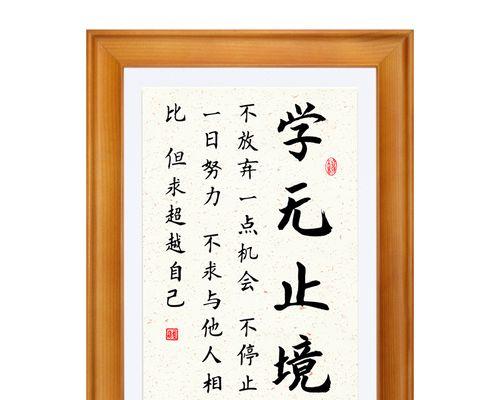 学无止境
不放弃一点机会 不停止
一日努力 不求与他人相
比 但求超越自己